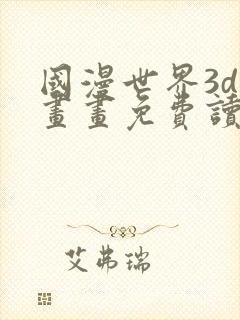 國漫世界3d
畫畫免費讀
艾弗瑞